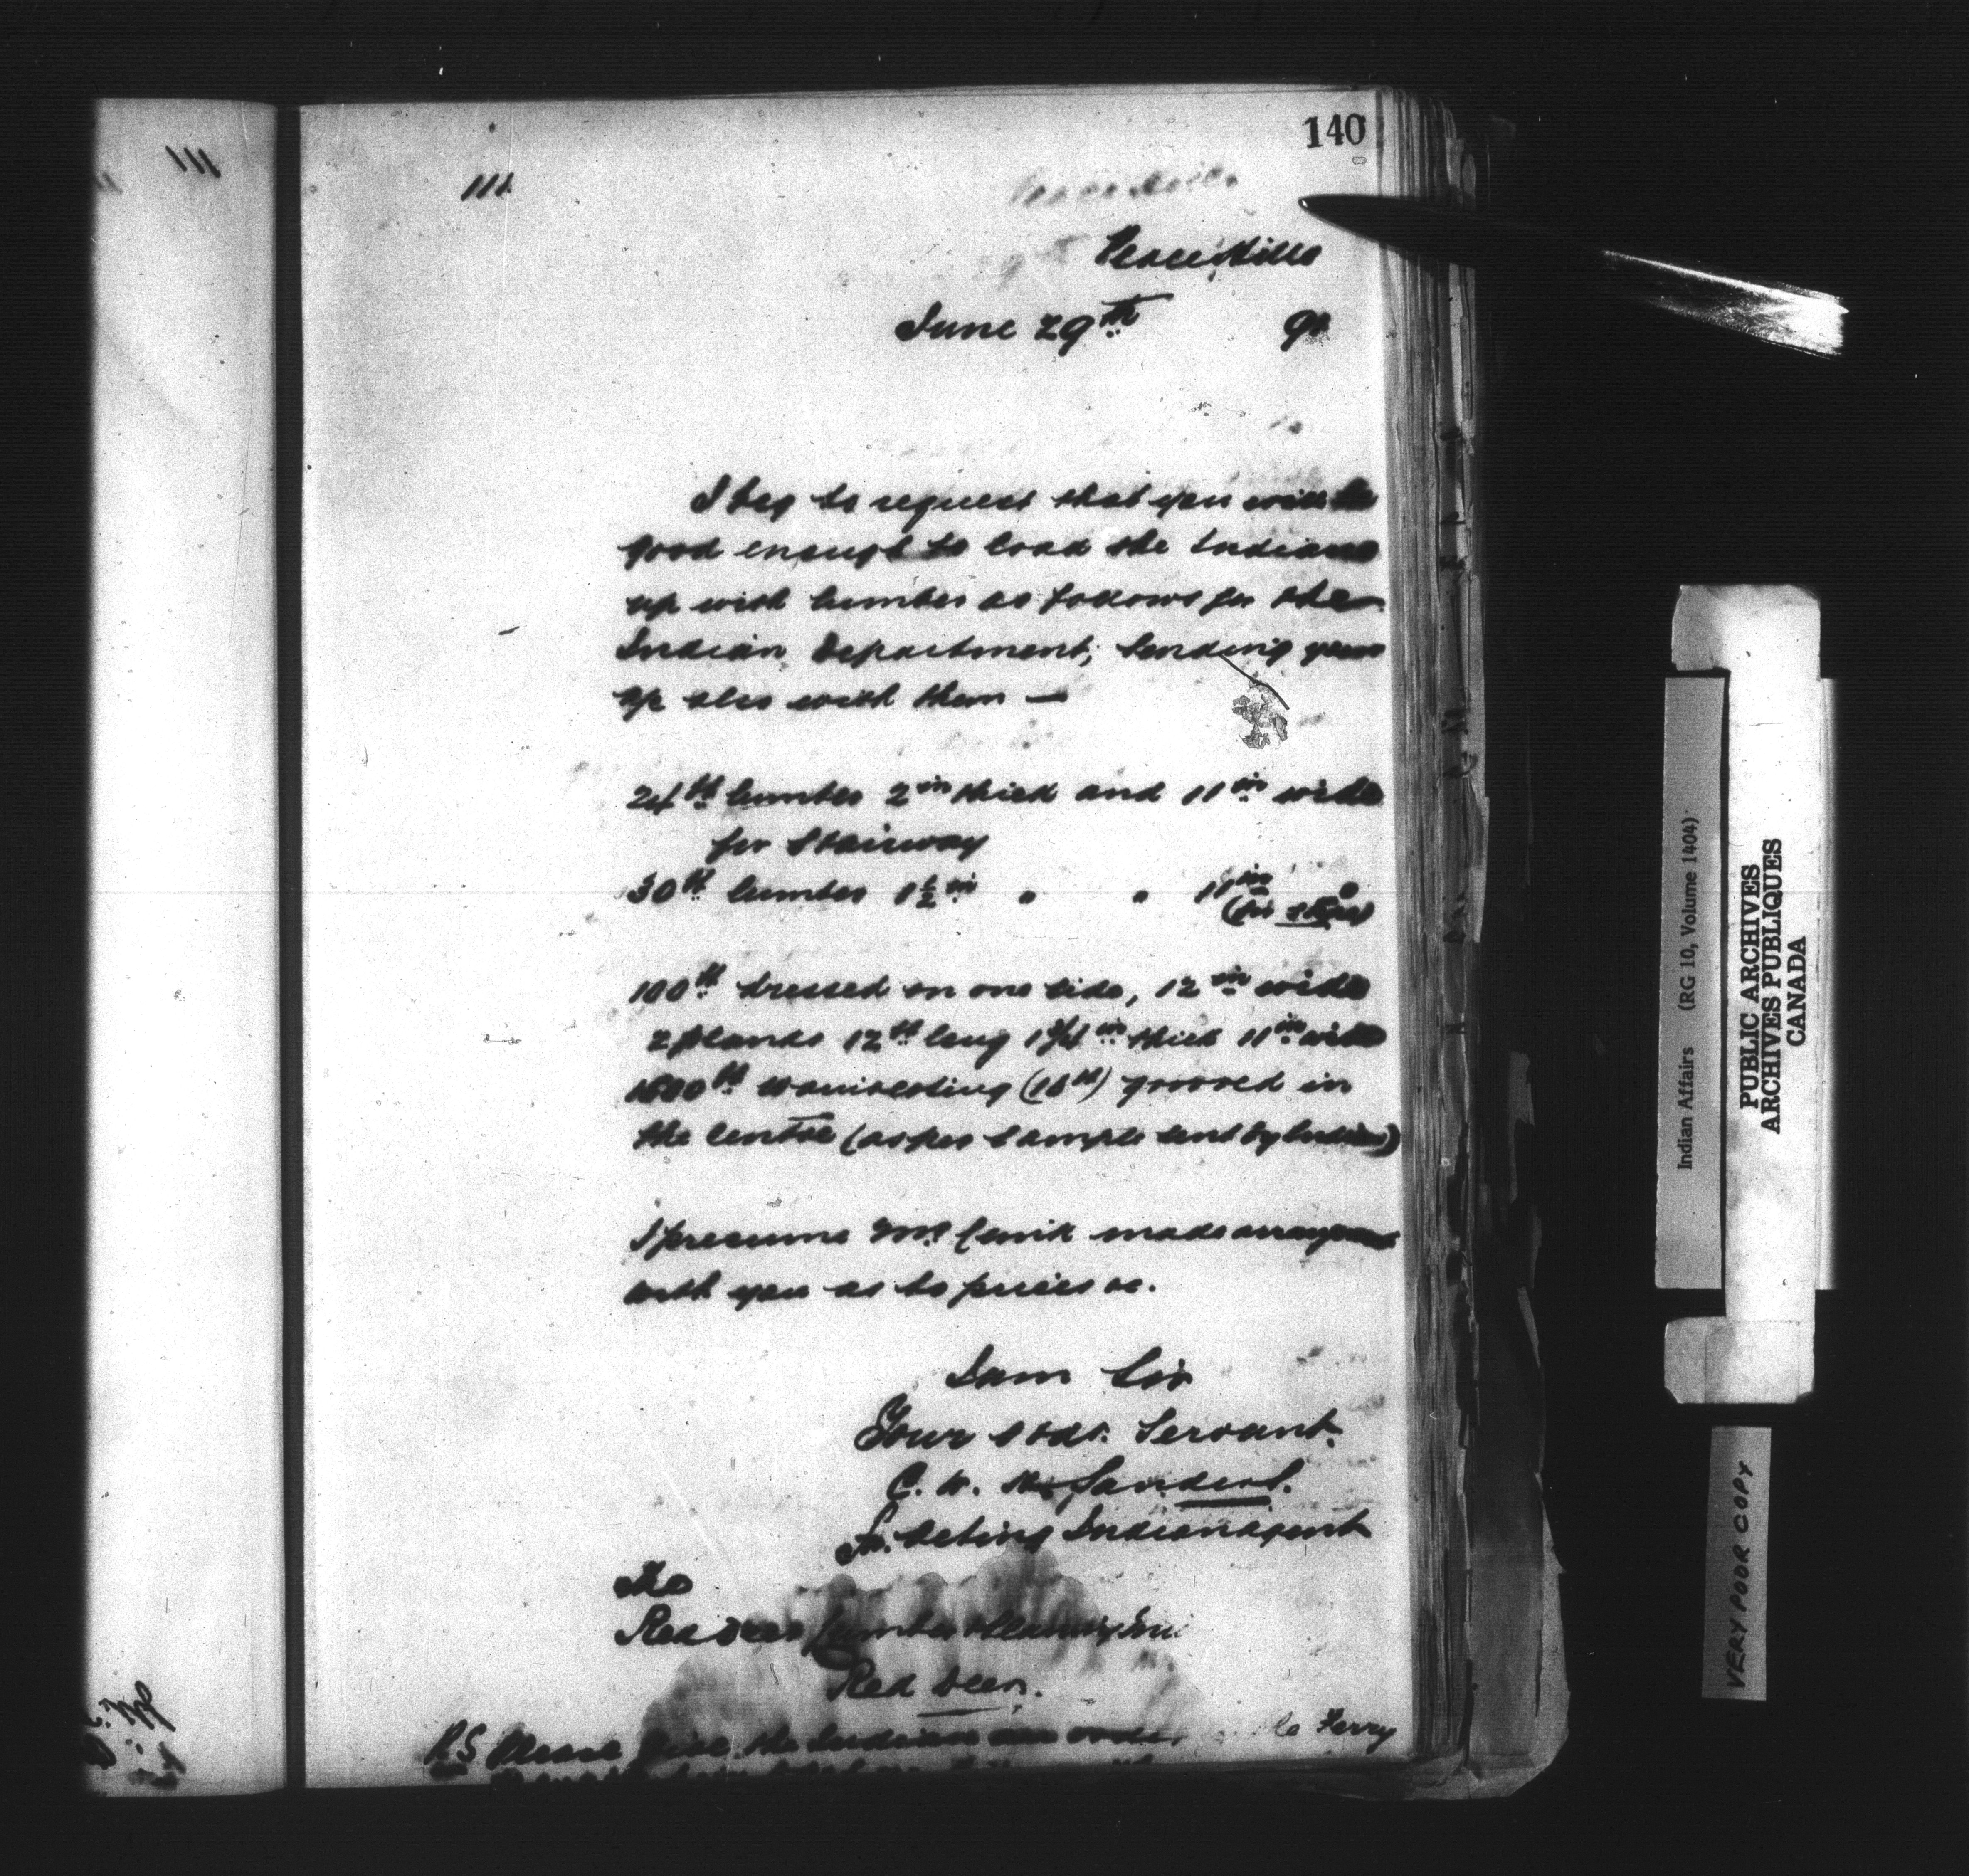 140
111
111
Peace Hills
June 29th 91
I beg to request that you will be
good enough to load the Indians
up with lumber as follows for the
Indian Department, sending
up also with them —
24 ft lumber 2 in thick and 11 in wide
for Stairway
30 ft lumber 1½ in " " 11 in
(for steps)
100 ft dressed on one side, 12 in wide
2 planks 12 ft long 1¾ in thick 11 in wide
ft Wainscoting (16 ft) grooved in
the centre (as per sample sent by Indian)
I presume Mr made
with you as to prices &c.
I am Sir
Your Obdt. Servant.
C. de
Acting Indian agent
To
Red Deer Lumber
Red Deer.
P.S Please give the Indians an order Ferry
Indian Affairs (RG 10, Volume 1404)
PUBLIC ARCHIVES
ARCHIVES PUBLIQUES
CANADA
VERY POOR COPY